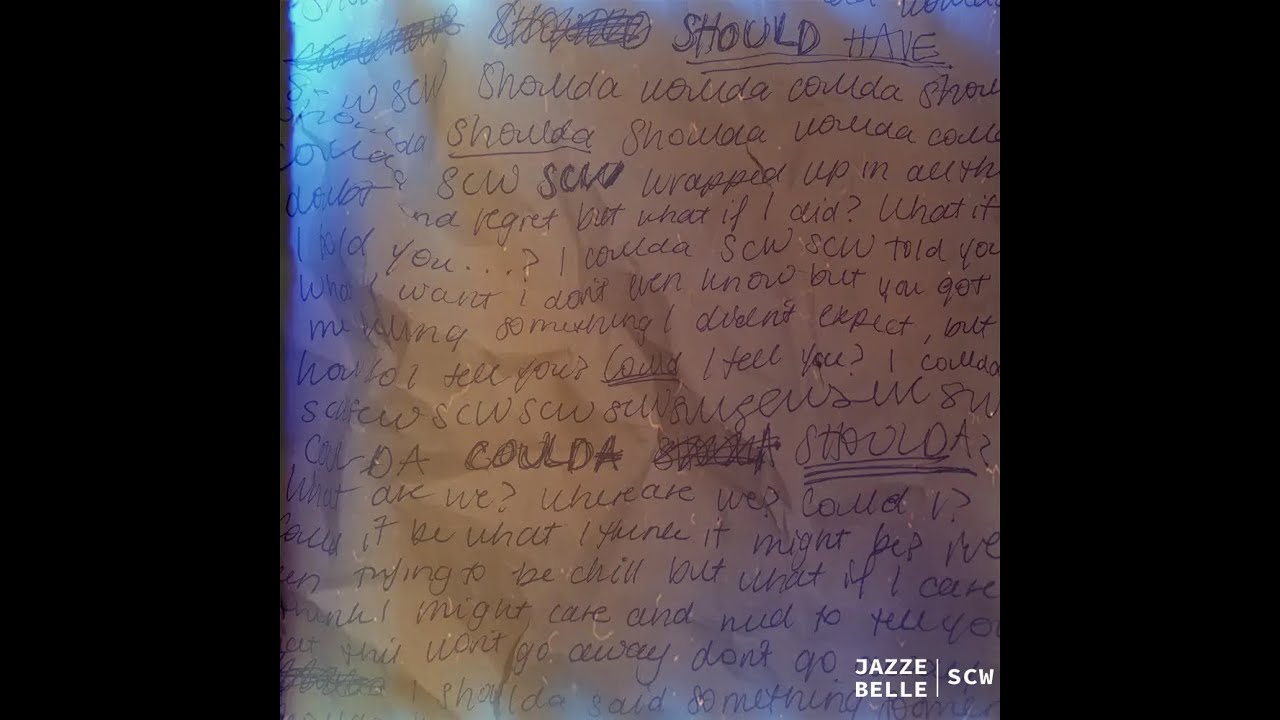 SHOULD HAVE
SCW Shoulda woulda coulda shou
coulda shoulda Shoulda woulda coul
doubt SCW SCW wrapped up in all th
and regret but what if I did? What if
I told you....? I coulda SCW SCW told you
what I want I don't even know but you got
me feeling something I didn't expect, but
how do I tell you? Could I tell you? I coulda
SCW SCW SCW SCW
COULDA COULDA SHOULDA?
What are we? Where are we? Could I?
Could it be what I think it might be? I've
en trying to be chill but what if I care
think I might care and need to tell you
at this won't go away don't go
I shoulda said something
JAZZE BELLE | SCW